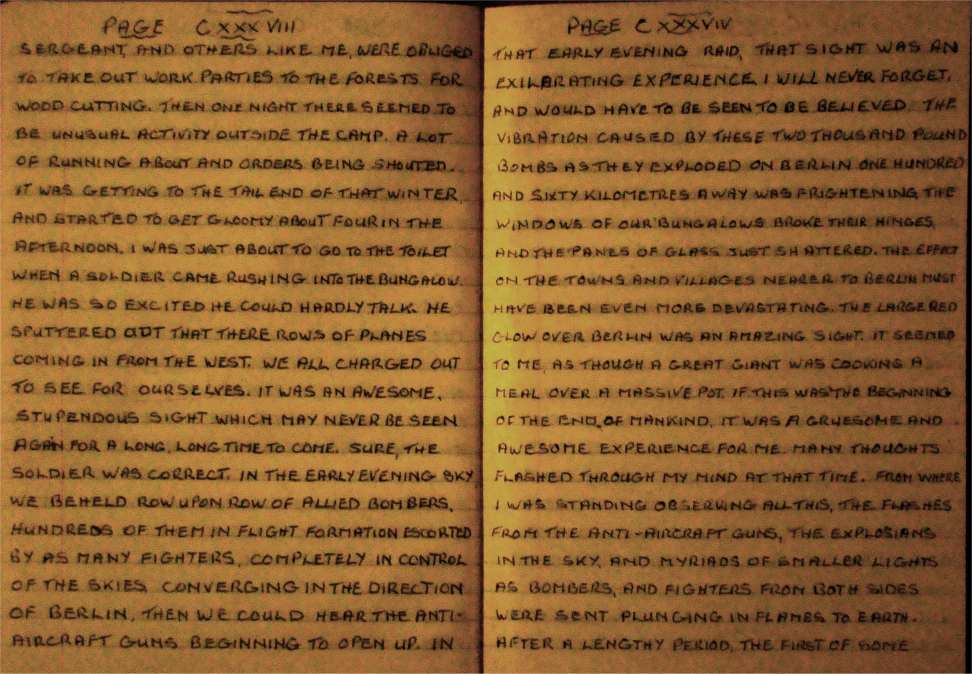 PAGE CXXXVIII
SERGEANT, AND OTHERS LIKE ME, WERE OBLIGED
TO TAKE OUT WORK PARTIES TO THE FORESTS FOR
WOOD CUTTING. THEN ONE NIGHT THERE SEEMED TO
BE UNUSUAL ACTIVITY OUTSIDE THE CAMP. A LOT
OF RUNNING ABOUT AND ORDERS BEING SHOUTED.
IT WAS GETTING TO THE TAIL END OF THAT WINTER,
AND STARTED TO GET GLOOMY ABOUT FOUR IN THE
AFTERNOON. I WAS JUST ABOUT TO GO TO THE TOILET
WHEN A SOLDIER CAME RUSHING INTO THE BUNGALOW.
HE WAS SO EXCITED HE COULD HARDLY TALK. HE
SPUTTERED OUT THAT THERE ROWS OF PLANES
COMING IN FROM THE WEST. WE ALL CHARGED OUT
TO SEE FOR OURSELVES. IT WAS AN AWESOME,
STUPENDOUS SIGHT WHICH MAY NEVER BE SEEN
AGAIN FOR A LONG, LONG TIME TO COME. SURE, THE
SOLDIER WAS CORRECT. IN THE EARLY EVENING SKY
WE BEHELD ROW UPON ROW OF ALLIED BOMBERS,
HUNDREDS OF THEM IN FLIGHT FORMATION ESCORTED
BY AS MANY FIGHTERS, COMPLETELY IN CONTROL
OF THE SKIES CONVERGING IN THE DIRECTION
OF BERLIN, THEN WE COULD HEAR THE ANTI-
AIRCRAFT GUNS BEGINNING TO OPEN UP. IN
PAGE CXXXVIV
THAT EARLY EVENING RAID, THAT SIGHT WAS AN
EXILARATING EXPERIENCE I WILL NEVER FORGET,
AND WOULD HAVE TO BE SEEN TO BE BELIEVED. THE
VIBRATION CAUSED BY THESE TWO THOUSAND POUND
BOMBS AS THEY EXPLODED ON BERLIN ONE HUNDRED
AND SIXTY KILOMETRES AWAY WAS FRIGHTENING. THE
WINDOWS OF OUR BUNGALOWS BROKE THEIR HINGES,
AND THE PANES OF GLASS JUST SHATTERED. THE EFFECT
ON THE TOWNS AND VILLAGES NEARER TO BERLIN MUST
HAVE BEEN EVEN MORE DEVASTATING. THE LARGE RED
GLOW OVER BERLIN WAS AN AMAZING SIGHT. IT SEEMED
TO ME, AS THOUGH A GREAT GIANT WAS COOKING A
MEAL OVER A MASSIVE POT. IF THIS WAS THE BEGINNING
OF THE END, OF MANKIND, IT WAS A GRUESOME AND
AWESOME EXPERIENCE FOR ME. MANY THOUGHTS
FLASHED THROUGH MY MIND AT THAT TIME. FROM WHERE
I WAS STANDING OBSERVING ALL THIS, THE FLASHES
FROM THE ANTI-AIRCRAFT GUNS, THE EXPLOSIANS
IN THE SKY, AND MYRIADS OF SMALLER LIGHTS
AS BOMBERS, AND FIGHTERS FROM BOTH SIDES
WERE SENT PLUNGING IN FLAMES TO EARTH.
AFTER A LENGTHY PERIOD, THE FIRST OF SOME